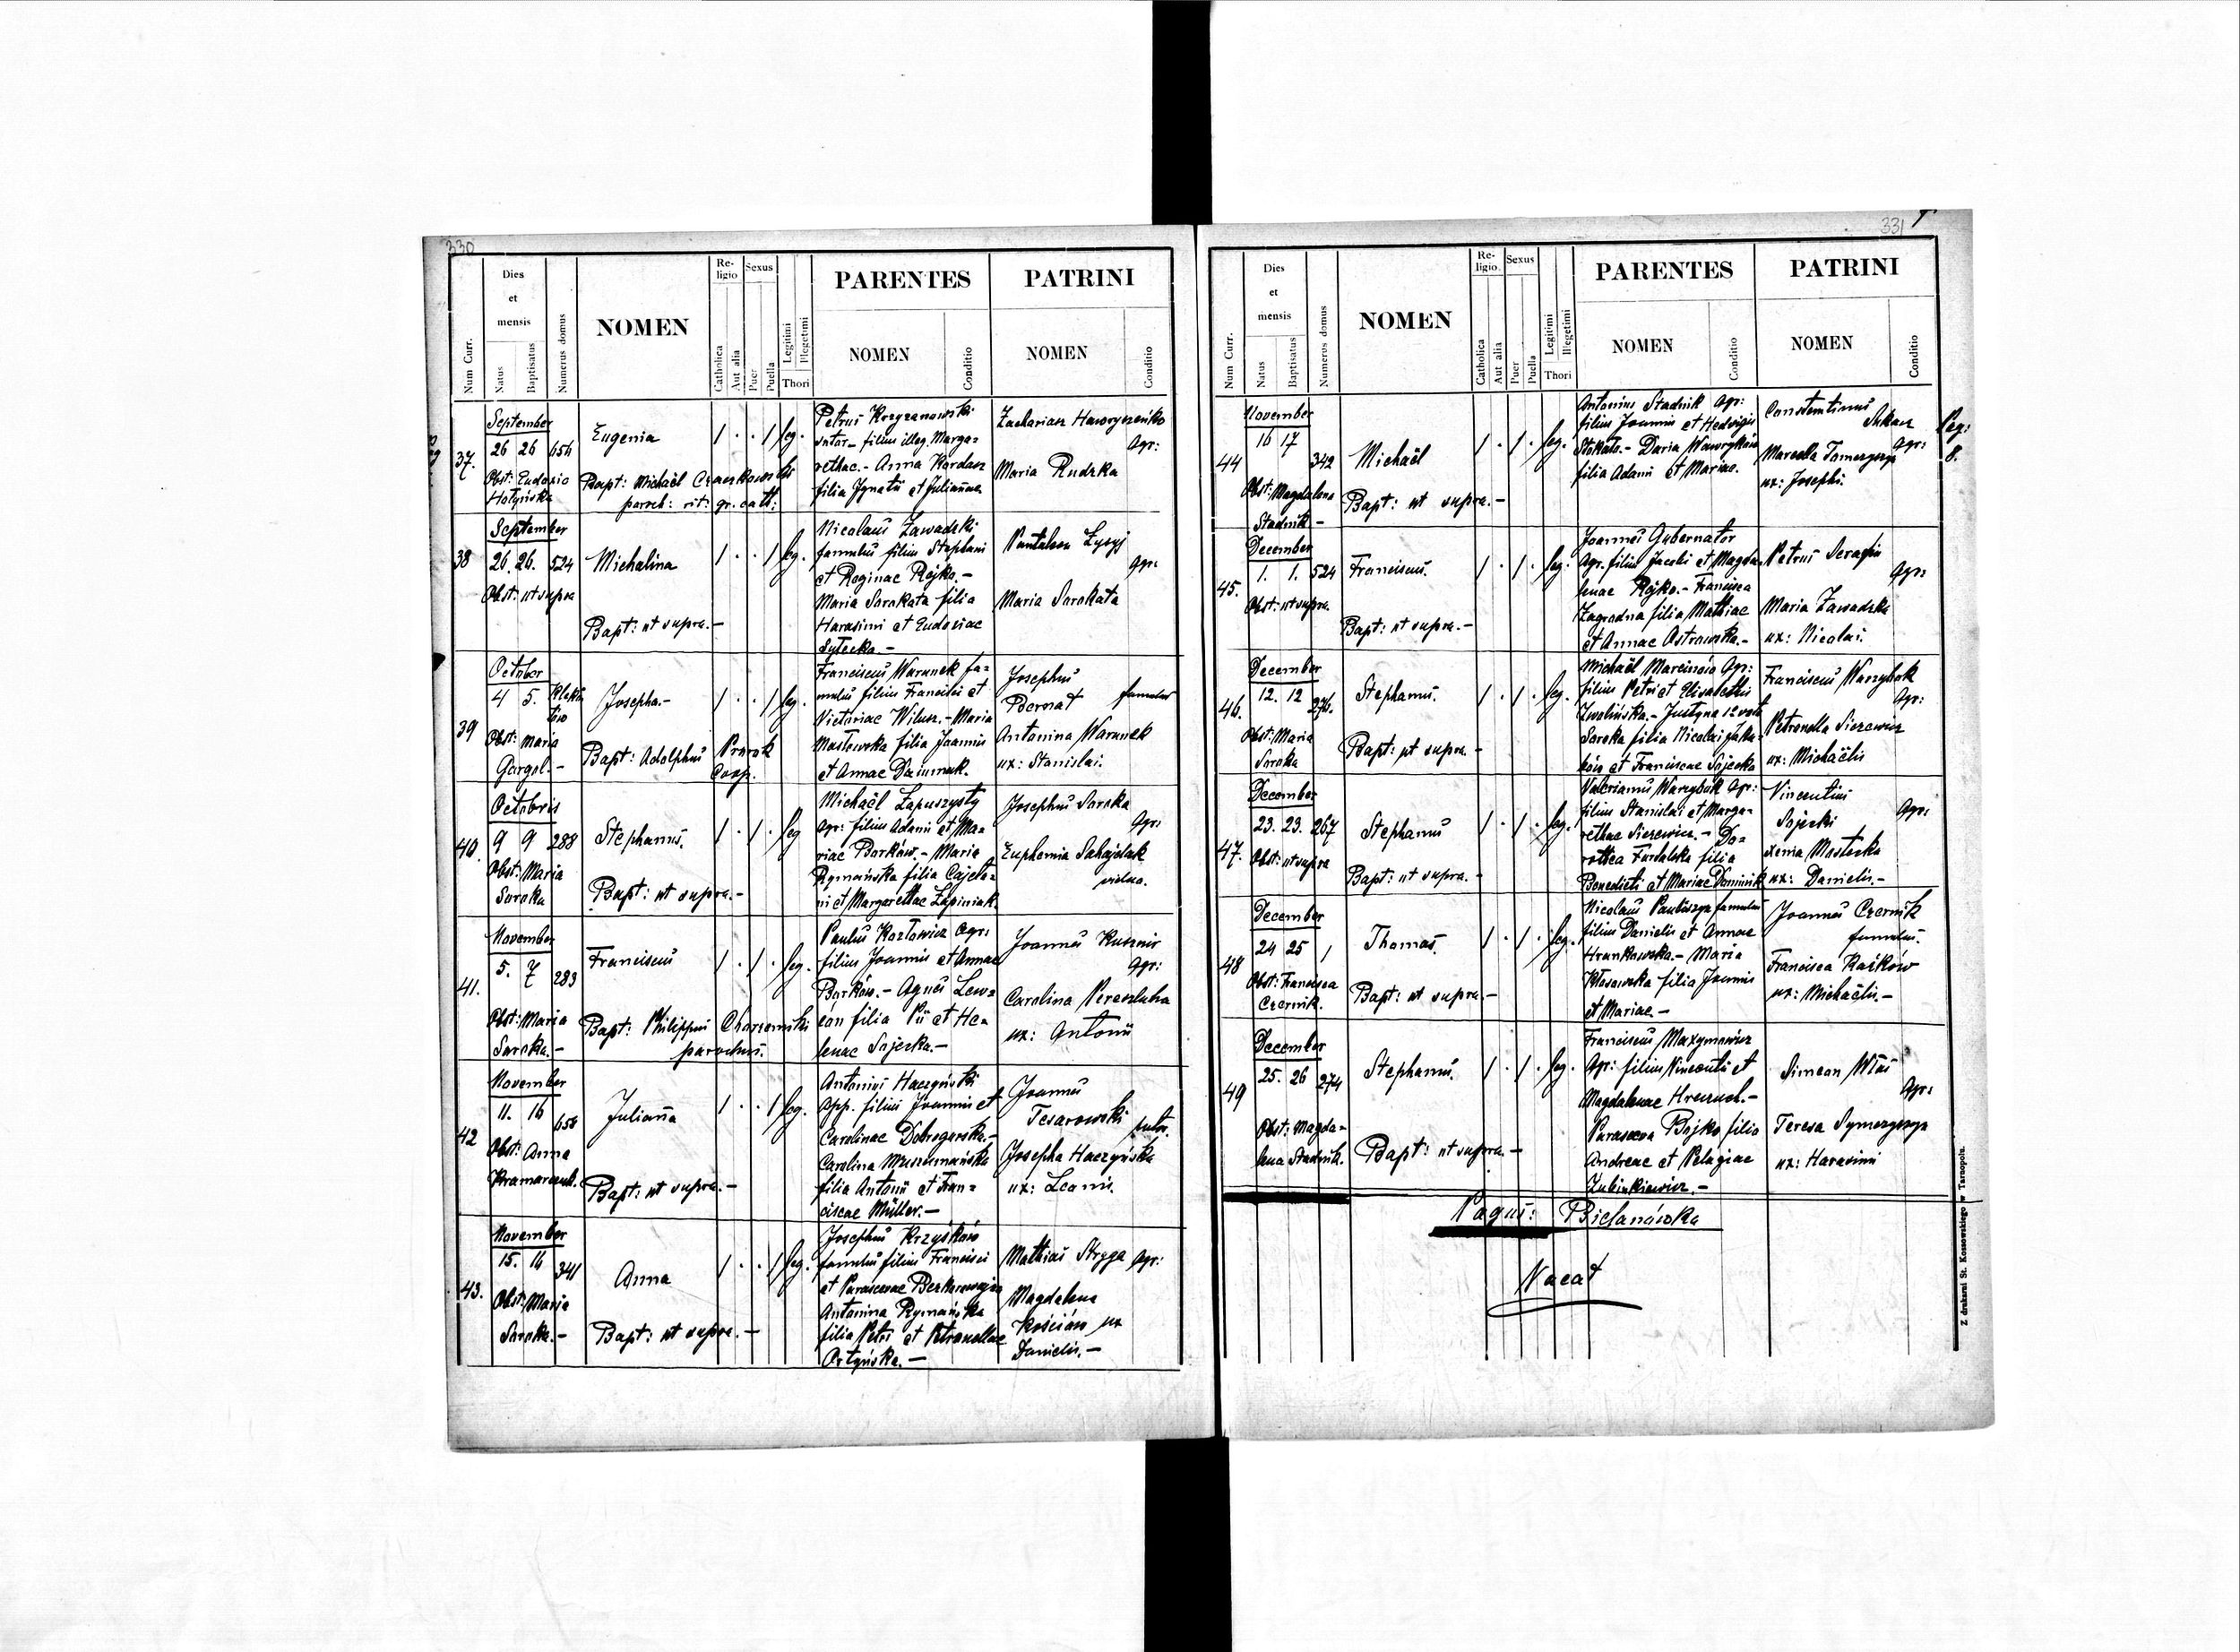 330
Num Curr.
Dies et mensis
Natus
Baptisatus
Numerus domus
NOMEN
Religio
Catholica
Aut alia
Sexus
Puer
Puella
Legitimi
Illegetimi
Thori
PARENTES
NOMEN
Conditio
PATRINI
NOMEN
Conditio
37.
September
26 26 654
Obst: Eudoxia
Hotyńska
Eugenia
Bapt: Michaël
paroch: rit: gr. cath:
1 . . 1 leg.
Petrus Krzyzanowski
sutor filius illeg. Marga=
rethae. - Anna Kordasz
filia Ignatii et Julianae
Zacharias Haworyszeńko
Agr:
Maria Rudzka
38
September
26. 26. 524
Obst: ut supra
Michalina
Bapt: ut supra. -
1 . . 1 leg.
Nicolaus Zawadzki
famulus filius Stephani
et Reginae Rojko. -
Maria Sarakata filia
Harasimi et Eudoxiae
Sytecka. -
Pantaleon Łysyj
Agr:
Maria Sarakata
39
October
4 5.
Obst: Maria
Gargol. -
Josepha. -
Bapt: Adolphus Prorok
Coop.
1 . . 1 leg.
Franciscus Warunek fa=
mulus filius Francisci et
Victoriae Wilusz. - Maria
Masłowska filia Joannis
et Annae
Josephus
Bernat famulus
Antonina Warunek
ux: Stanislai.
40.
Octobris
9 9 288
Obst: Maria
Soroka
Stephanus.
Bapt: ut supra. -
1 . 1 . leg
Michaël Łapuszysty
Agr: filius Adami et Ma=
riae Borków. - Maria
Rymańska filia Cajeta=
ni et Margarethae Łapiniak.
Josephus Soroka
Agr:
Euphemia Sahajdak
vidua.
41.
November
5. 7 283
Obst: Maria
Soroka. -
Franciscus
Bapt: Philippus Charzewski
parochus.
1 . 1 . leg.
Paulus Kozłowicz Agr:
filius Joannis et Annae
Borków. - Agnes Lew=
ców filia Pii et He=
lenae Sojecka. -
Joannes Kusznir
Agr:
Carolina Pereszluha
ux: Antonii
42
November
11. 16 654
Obst: Anna
Kramarczuk.
Juliana
Bapt: ut supra. -
1 . . 1 leg.
Antonius Haczyński
Opp. filius Joannis et
Carolinae Dobrogorska. -
Carolina Muszumańska
filia Antonii et Fran=
ciscae Müller. -
Joannes
Tesarowski sutor.
Josepha Haczyńska
ux: Leonis.
43.
November
15. 16 341
Obst: Maria
Soroka. -
Anna
Bapt: ut supra. -
1 . . 1 leg.
Josephus Krzyśków
famulus filius Francisci
et Parascevae
Antonina Rymańska
filia Petri et Petronellae
Ortyńska. -
Mathias Stryga Agr:
Magdalena
Kościów ux
Danielis. -
331
Num Curr.
Dies et mensis
Natus
Baptisatus
Numerus domus
NOMEN
Religio.
Catholica
Aut alia
Sexus
Puer
Puella
Legitimi
Illegetimi
Thori
PARENTES
NOMEN
Conditio
PATRINI
NOMEN
Conditio
44
November
16 17 342
Obst: Magdalena
Stadnik -
Michaël
Bapt: ut supra. -
1 . 1 . leg.
Antonius Stadnik Agr:
filius Joannis et Hedvigis
Stokato. - Daria Wawryków
filia Adami et Mariae.
Constantinus
Agr:
Marcella
ux: Josephi.
Pag:
8.
45.
December
1. 1. 524
Obst: ut supra.
Franciscus.
Bapt: ut supra. -
1 . 1 . leg.
Joannes Gubernator
Agr. filius Jacobi et Magda=
lenae Rojko. - Francisca
Zagrodna filia Mathiae
et Annae Ostrowska. -
Petrus Serafin
Agr:
Maria Zawadzka
ux: Nicolai.
46.
December
12. 12 276.
Obst: Maria
Soroka
Stephanus.
Bapt: ut supra. -
1 . 1 . leg.
Michaël Marcinów Agr:
filius Petri et Elisabethis
Zwolińska. - Justyna 1º voto
Soroka filia Nicolai Jaku=
ków et Franciscae Sojecka
Franciscus Warzybok
Agr:
Petronella Siezewicz
ux: Michaëlis
47.
December
23. 23. 267
Obst: ut supra
Stephanus
Bapt: ut supra. -
1 . 1 . leg.
Valerianus Warzybok Agr:
filius Stanislai et Marga=
rethae Siezewicz. - Do=
rothea Fundalska filia
Benedicti et Mariae Dominik
Vincentius
Sojecki Agr:
Xenia Mostecka
ux: Danielis. -
48
December
24 25 1
Obst: Francisca
Czernik.
Thomas.
Bapt: ut supra. -
1 . 1 . leg.
Nicolaus Pauluszyn famulus
filius Danielis et Annae
Hrankowska. - Maria
Kłosowska filia Joannis
et Mariae. -
Joannes Czernik
famulus.
Francisca Raśków
ux: Michaëlis. -
49
December
25. 26 274
Obst: Magda=
lena Stadnik.
Stephanus.
Bapt: ut supra. -
1 . 1 . leg.
Franciscus Maxymowicz
Agr: filius Vincentii et
Magdalenae Hreczuch. -
Parasceva Bojko filia
Andreae et Pelagiae
Żubinkiewicz. -
Simeon Włas
Agr:
Teresa Symczyszyn
ux: Harasimi
Pagus: Bielanówka
Vacat
Z drukarni St. Kossowskiego w Tarnopolu.